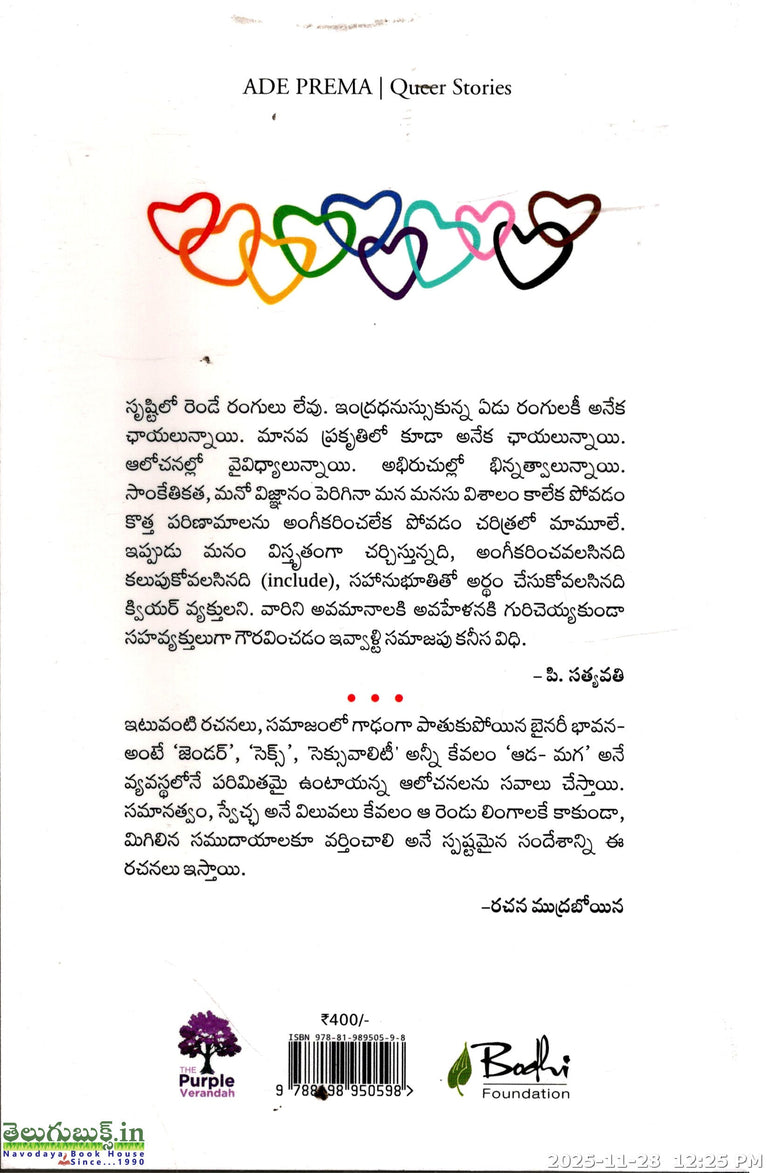 ADE PREMA | Queer Stories
సృష్టిలో రెండే రంగులు లేవు. ఇంద్రధనుస్సుకున్న ఏడు రంగులకీ అనేక
ఛాయలున్నాయి. మానవ ప్రకృతిలో కూడా అనేక ఛాయలున్నాయి.
ఆలోచనల్లో వైవిధ్యాలున్నాయి. అభిరుచుల్లో భిన్నత్వాలున్నాయి.
సాంకేతికత, మనో విజ్ఞానం పెరిగినా మన మనసు విశాలం కాలేక పోవడం
కొత్త పరిణామాలను అంగీకరించలేక పోవడం చరిత్రలో మామూలే.
ఇప్పుడు మనం విస్తృతంగా చర్చిస్తున్నది, అంగీకరించవలసినది
కలుపుకోవలసినది (include), సహానుభూతితో అర్థం చేసుకోవలసినది
క్వియర్ వ్యక్తులని. వారిని అవమానాలకి అవహేళనకి గురిచెయ్యకుండా
సహవ్యక్తులుగా గౌరవించడం ఇవ్వాళ్టి సమాజపు కనీస విధి.
– పి. సత్యవతి
ఇటువంటి రచనలు, సమాజంలో గాఢంగా పాతుకుపోయిన బైనరీ భావన-
అంటే ‘జెండర్’, ‘సెక్స్’, ‘సెక్సువాలిటీ’ అన్నీ కేవలం ‘ఆడ- మగ’ అనే
వ్యవస్థలోనే పరిమితమై ఉంటాయన్న ఆలోచనలను సవాలు చేస్తాయి.
సమానత్వం, స్వేచ్ఛ అనే విలువలు కేవలం ఆ రెండు లింగాలకే కాకుండా,
మిగిలిన సముదాయాలకూ వర్తించాలి అనే స్పష్టమైన సందేశాన్ని ఈ
రచనలు ఇస్తాయి.
–రచన ముద్రబోయిన
₹400/-
ISBN 978-81-989505-9-8
9 788198 950598 >
THE
Purple
Verandah
Bodhi
Foundation
తెలుగుబుక్స్.in
Navodaya Book House
Since...1990
2025-11-28 12:25 PM